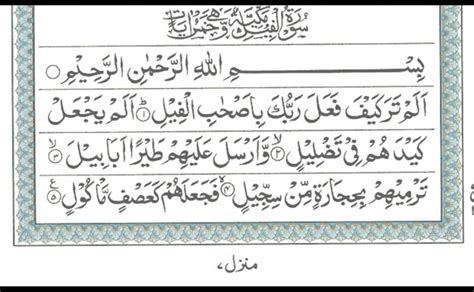 سُوْرَةُ الْفِيْلِ مَكِّيَّةٌ وَّهِيَ خَمْسُ اٰيَاتٍ
بِسْمِ اللهِ الرَّحْمٰنِ الرَّحِيْمِ ○
اَلَمْ تَرَ كَيْفَ فَعَلَ رَبُّكَ بِاَصْحٰبِ الْفِيْلِ ؕ۝۱ اَلَمْ يَجْعَلْ
كَيْدَهُمْ فِيْ تَضْلِيْلٍ ۙ۝۲ وَّاَرْسَلَ عَلَيْهِمْ طَيْرًا اَبَابِيْلَ ۙ۝۳
تَرْمِيْهِمْ بِحِجَارَةٍ مِّنْ سِجِّيْلٍ ۪ۙ۝۴ فَجَعَلَهُمْ كَعَصْفٍ مَّاْكُوْلٍ ۧ۝۵
منزل،